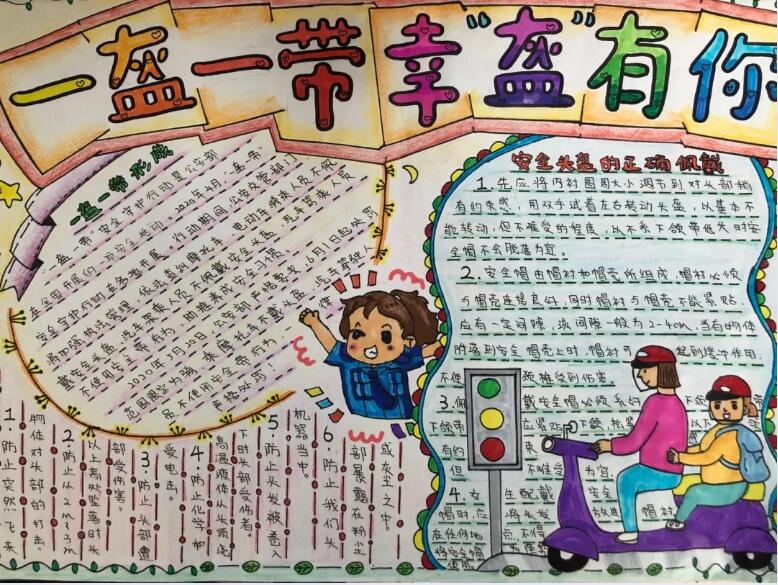 一盔一带 幸"盔"有你
一盔一带
"一盔一带"安全守护行动是公安部
在全国开展的一项安全行动。2020年4月
安全守护行动在各地开展。行动期间，公安交管部门
将加强执法管理，依法查纠摩托车、电动车骑乘人员不佩
戴安全头盔、汽车驾乘人员不
不使用安全带行为，助推养成安全习惯。
2020年5月20日公安部
范围限定为骑乘摩托车不戴头盔
员不使用安全带行为
严格处罚！
安全头盔的正确佩戴
1.先应将内衬圆周大小调节到对头部稍
有约束感，用双手试着左右转动头盔，以基本不
能转动，但不难受的程度，以不系下领带低头时安
全帽不会脱落为宜。
2.安全帽由帽衬和帽壳所组成，帽衬必须
与帽壳连接良好，同时帽衬与帽壳不能紧贴，
应有一定间隙，该间隙一般为2-4cm，当有物体
附落到安全帽壳上时，帽衬可起到缓冲作用，
不使颈椎受到伤害。
3.佩戴安全帽必须系
下领带应紧贴下领
有约
但不难受为宜。
4.女生配戴安全
帽时，应将头发放进帽衬
在任何地点，不得
将安全帽
1.防止突然飞来
物体对头部的打击
2.防止从2m~3m
以上高处坠落时头
部受伤害。
3.防止头部遭
受电击。
4.防止化学和
高温液体从头顶浇
下时头部受伤者
5.防止头发被卷入
机器当中。
6.防止我们头
部暴露在粉尘
或灰尘之中。